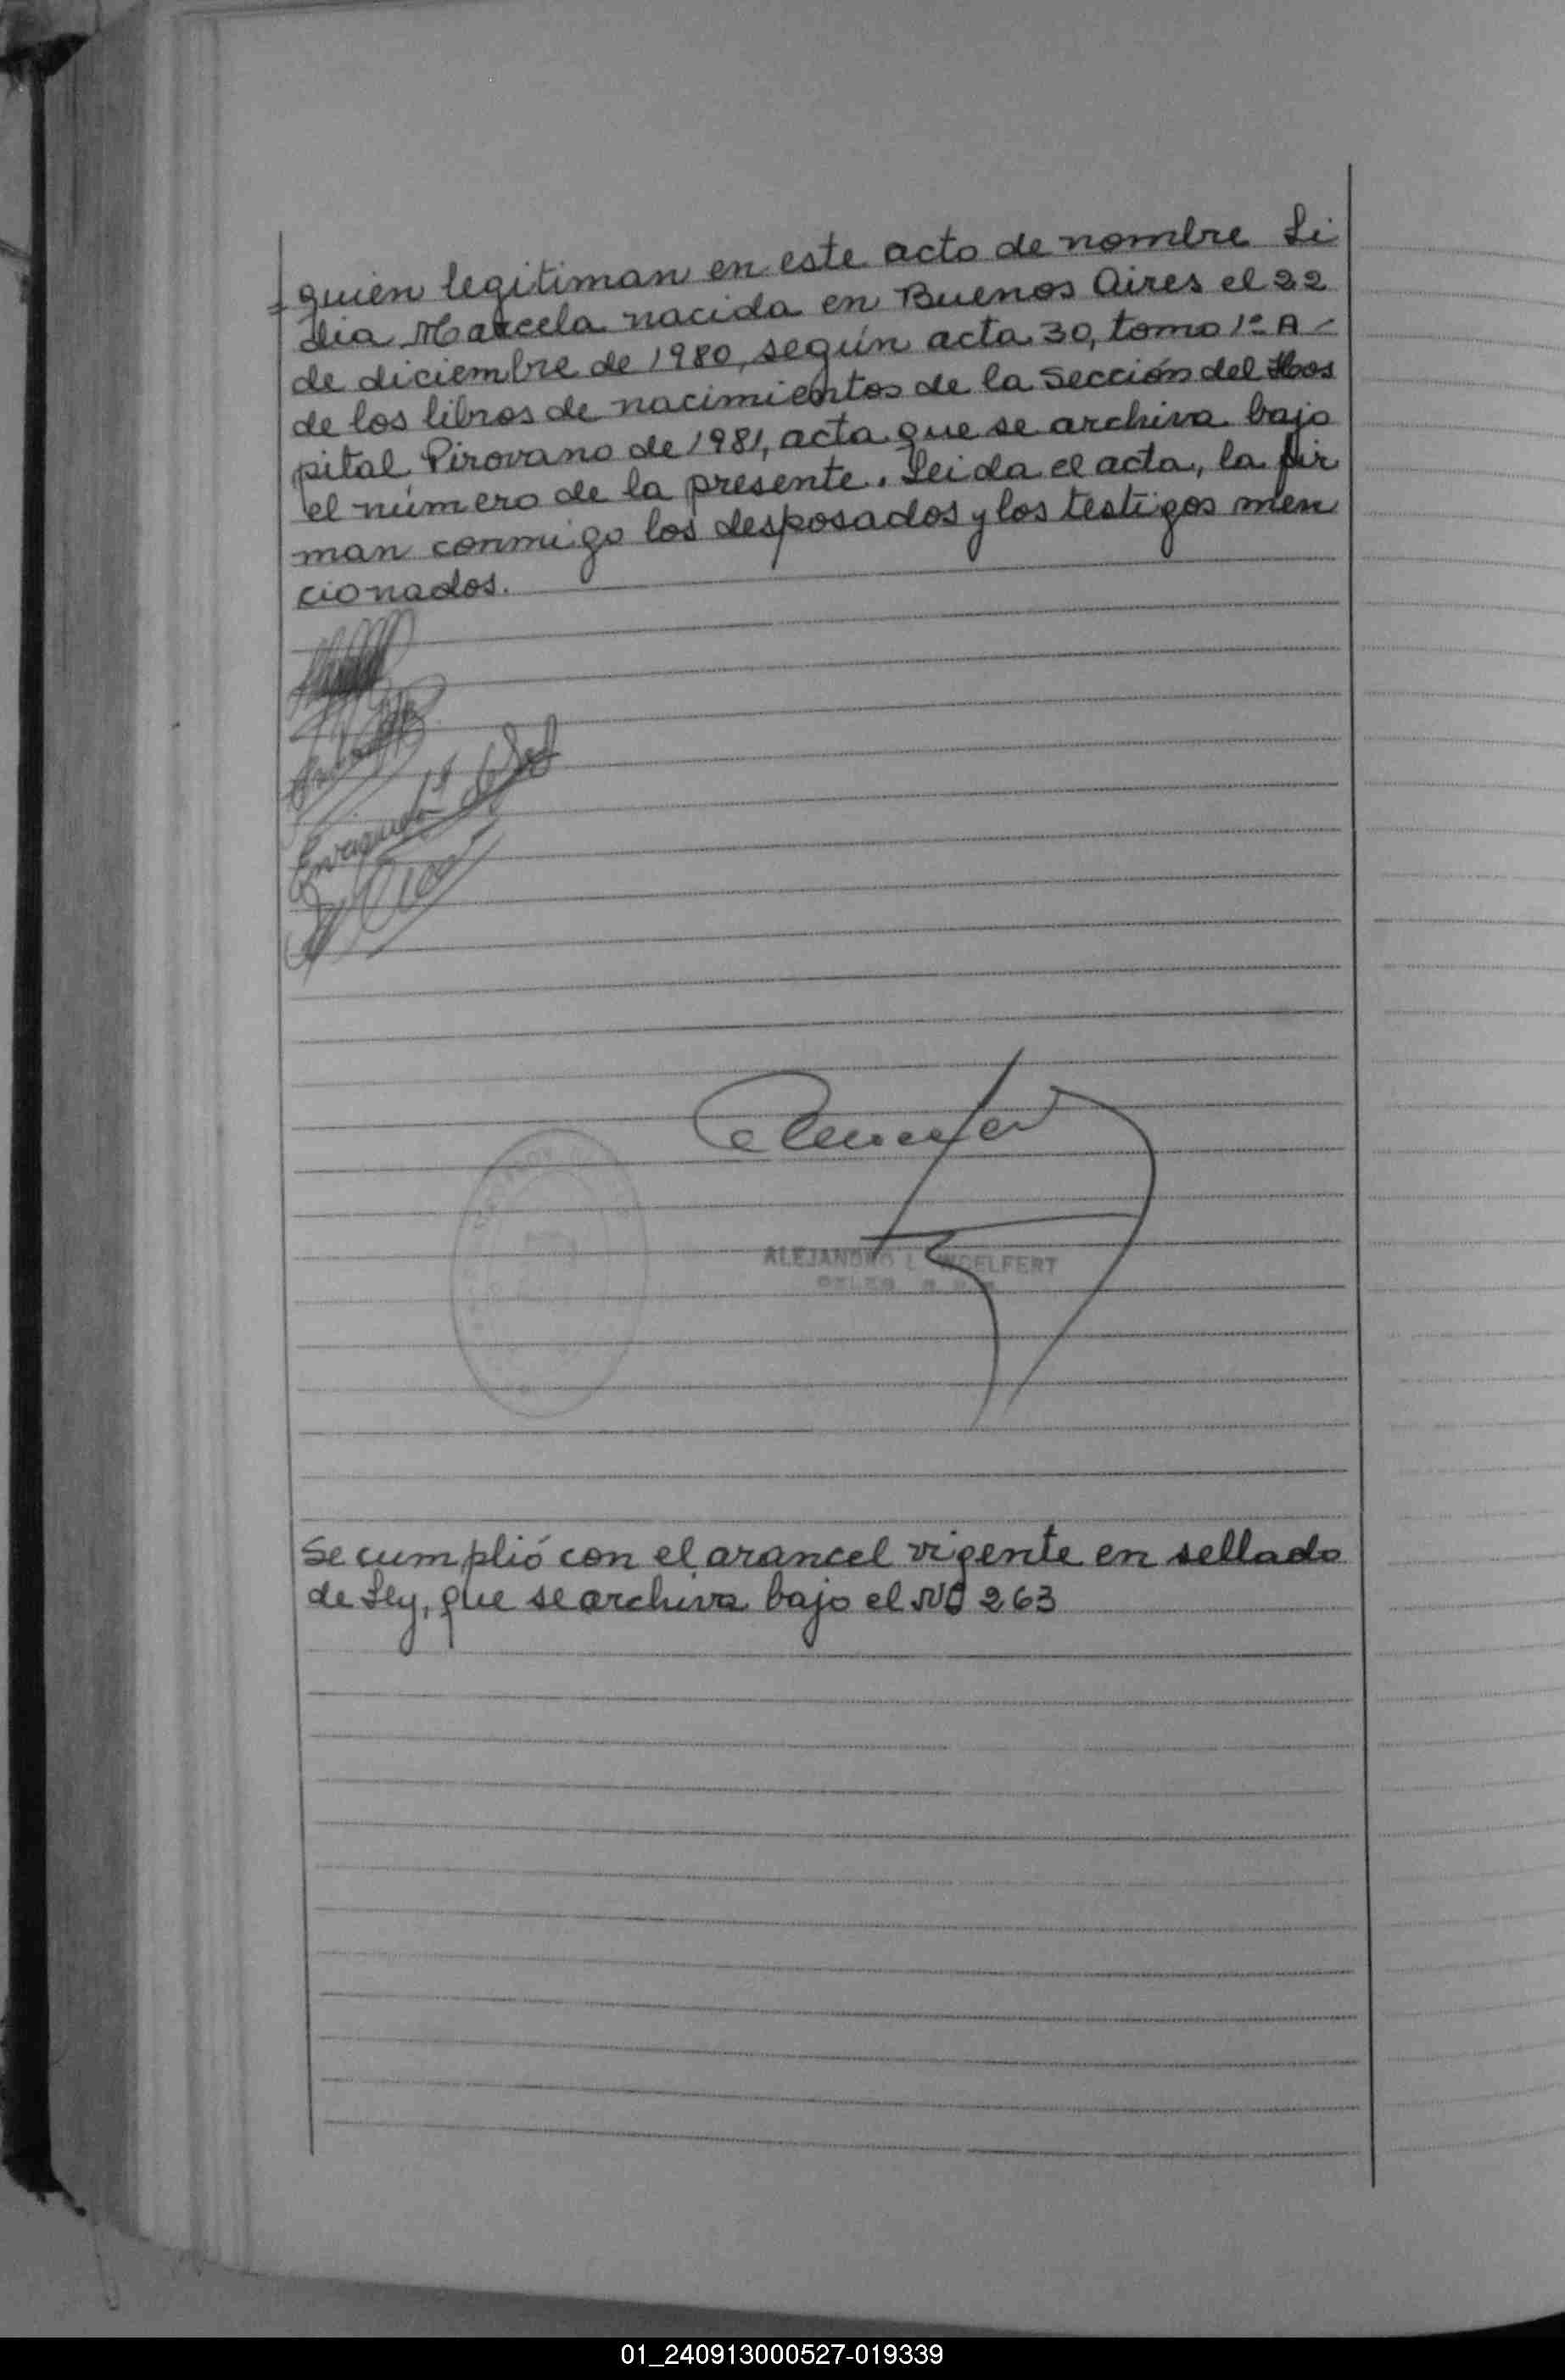 quien legitiman en este acto de nombre Li
dia Marcela nacida en Buenos Aires el 22
de diciembre de 1980, según acta 30, tomo 1º A -
de los libros de nacimientos de la Sección del Hos
pital Pirovano de 1981, acta que se archiva bajo
el número de la presente. Leida el acta, la fir
man conmigo los desposados y los testigos men
cionados.
Enriqueta
ALEJANDRO L WOELFERT
Se cumplió con el arancel vigente en sellado
de Ley, que se archiva bajo el Nº 263
01_240913000527-019339